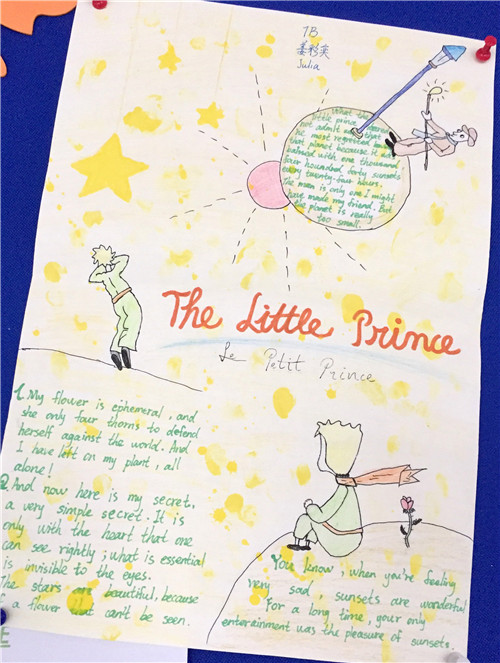 7B
Julia
What the
little prince
not admit was that
he most regretted
that planet because it was
balmed with one thousand
four hounded forty sunsets
every twenty-four hours.
The man is only one I might
have made my friend. But
the planet is really
too small.
The Little Prince
Le Petit Prince
1. My flower is ephemeral, and
she only four thorns to defend
herself against the world. And
I have left on my plant, all
alone!
2. And now here is my secret,
a very simple secret: It is
only with the heart that one
can see rightly; what is essential
is invisible to the eyes.
The stars are beautiful, because
of a flower that can't be seen.
You know, when you're feeling
very sad, sunsets are wonderful
For a long time, your only
enterainment was the pleasure of sunsets.